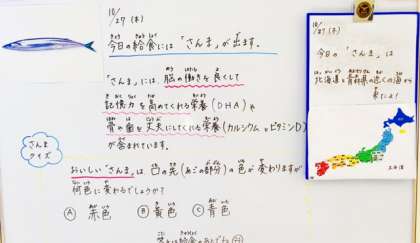 10/27(木)
今日の給食には「さんま」が出ます。
「さんま」には 脳の働きを良くして
記憶力を高めてくれる栄養(DHA)や
骨や歯を丈夫にしてくれる栄養(カルシウム、ビタミンD)
が含まれています。
さんま
クイズ
おいしい「さんま」は口の先(あごの部分)の色が変わりますが
何色に変わるでしょうか?
Ⓐ 赤色 Ⓑ 黄色 Ⓒ 青色
10/27(木)
今日の「さんま」は
北海道と青森県の近くの海から
来たよ!
北海道